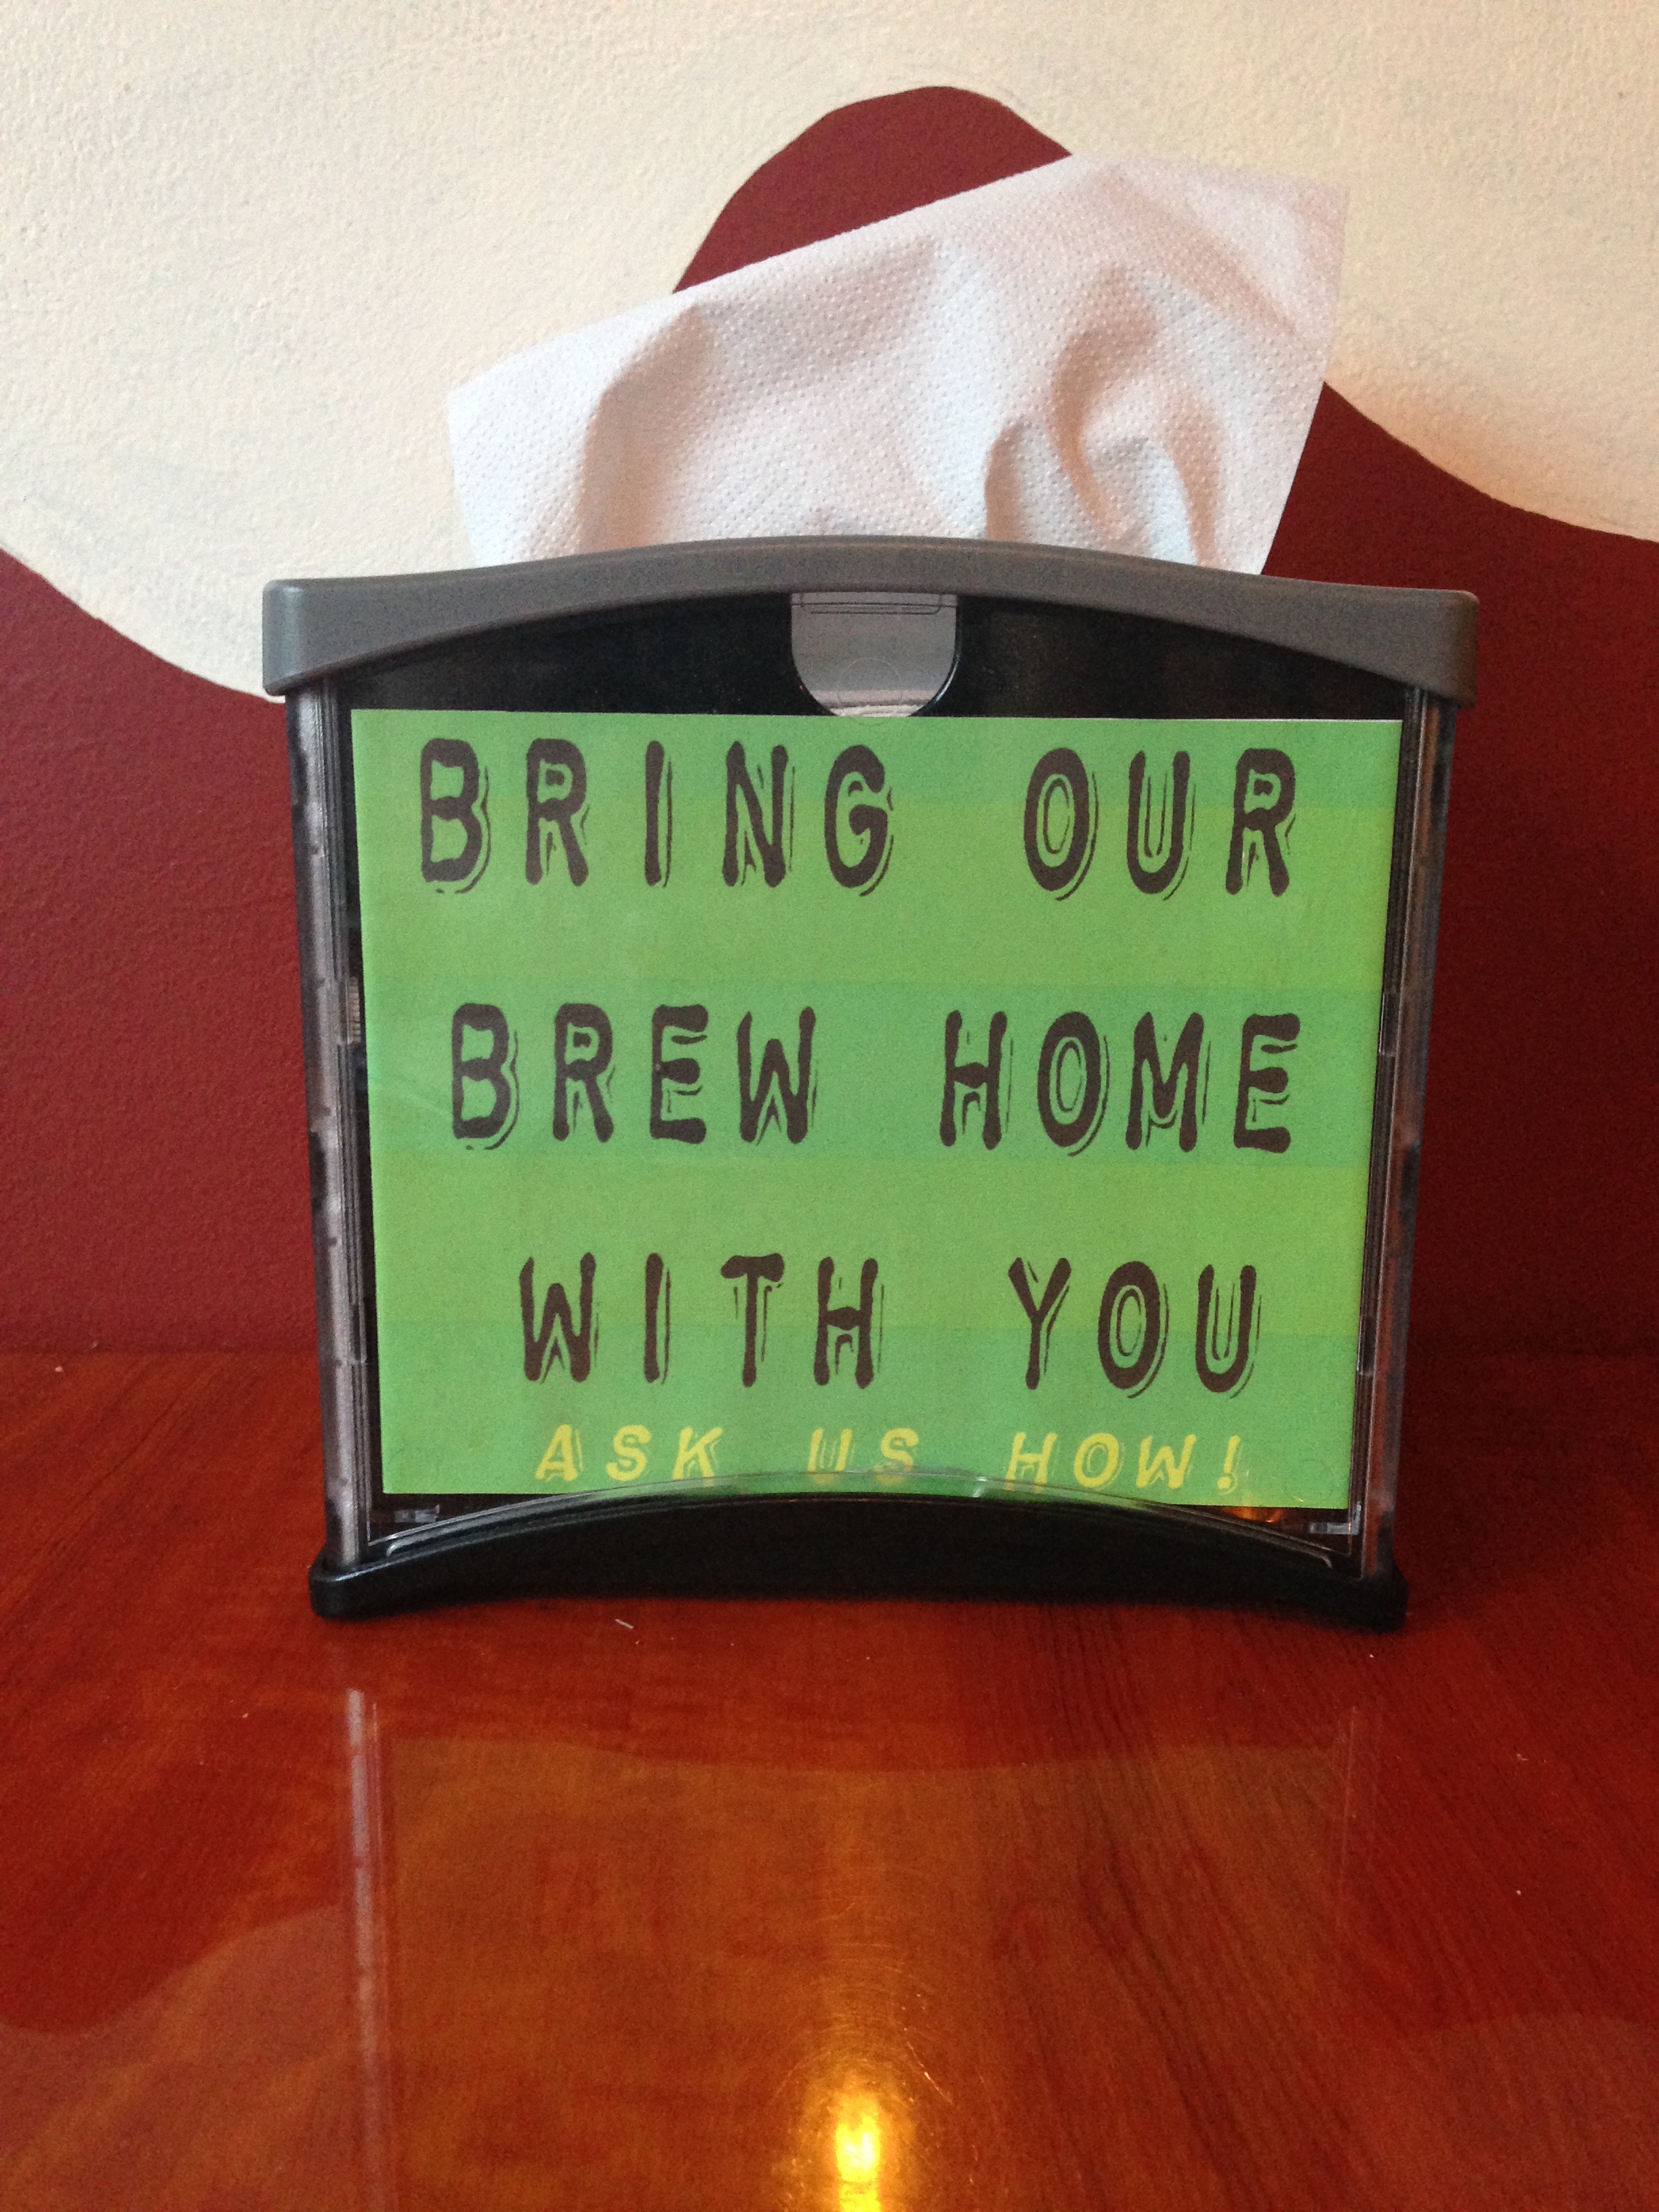 BRING OUR
BREW HOME
WITH YOU
ASK US HOW!